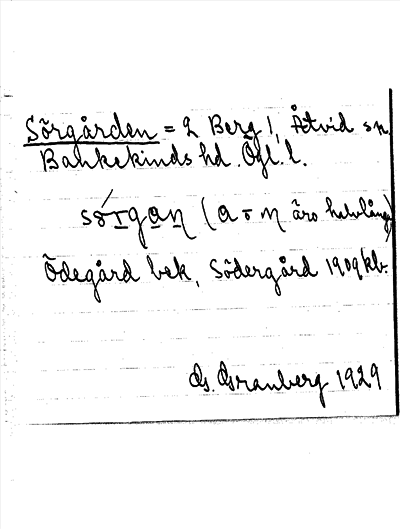 Sörgården = 2 Berg 1, Åtvid sn,
Bankekinds hd. Ögl. l.
sörgan (a o n äro halvlånga)
Ödegård bek, Södergård 1909 kb.
G. Granberg 1929